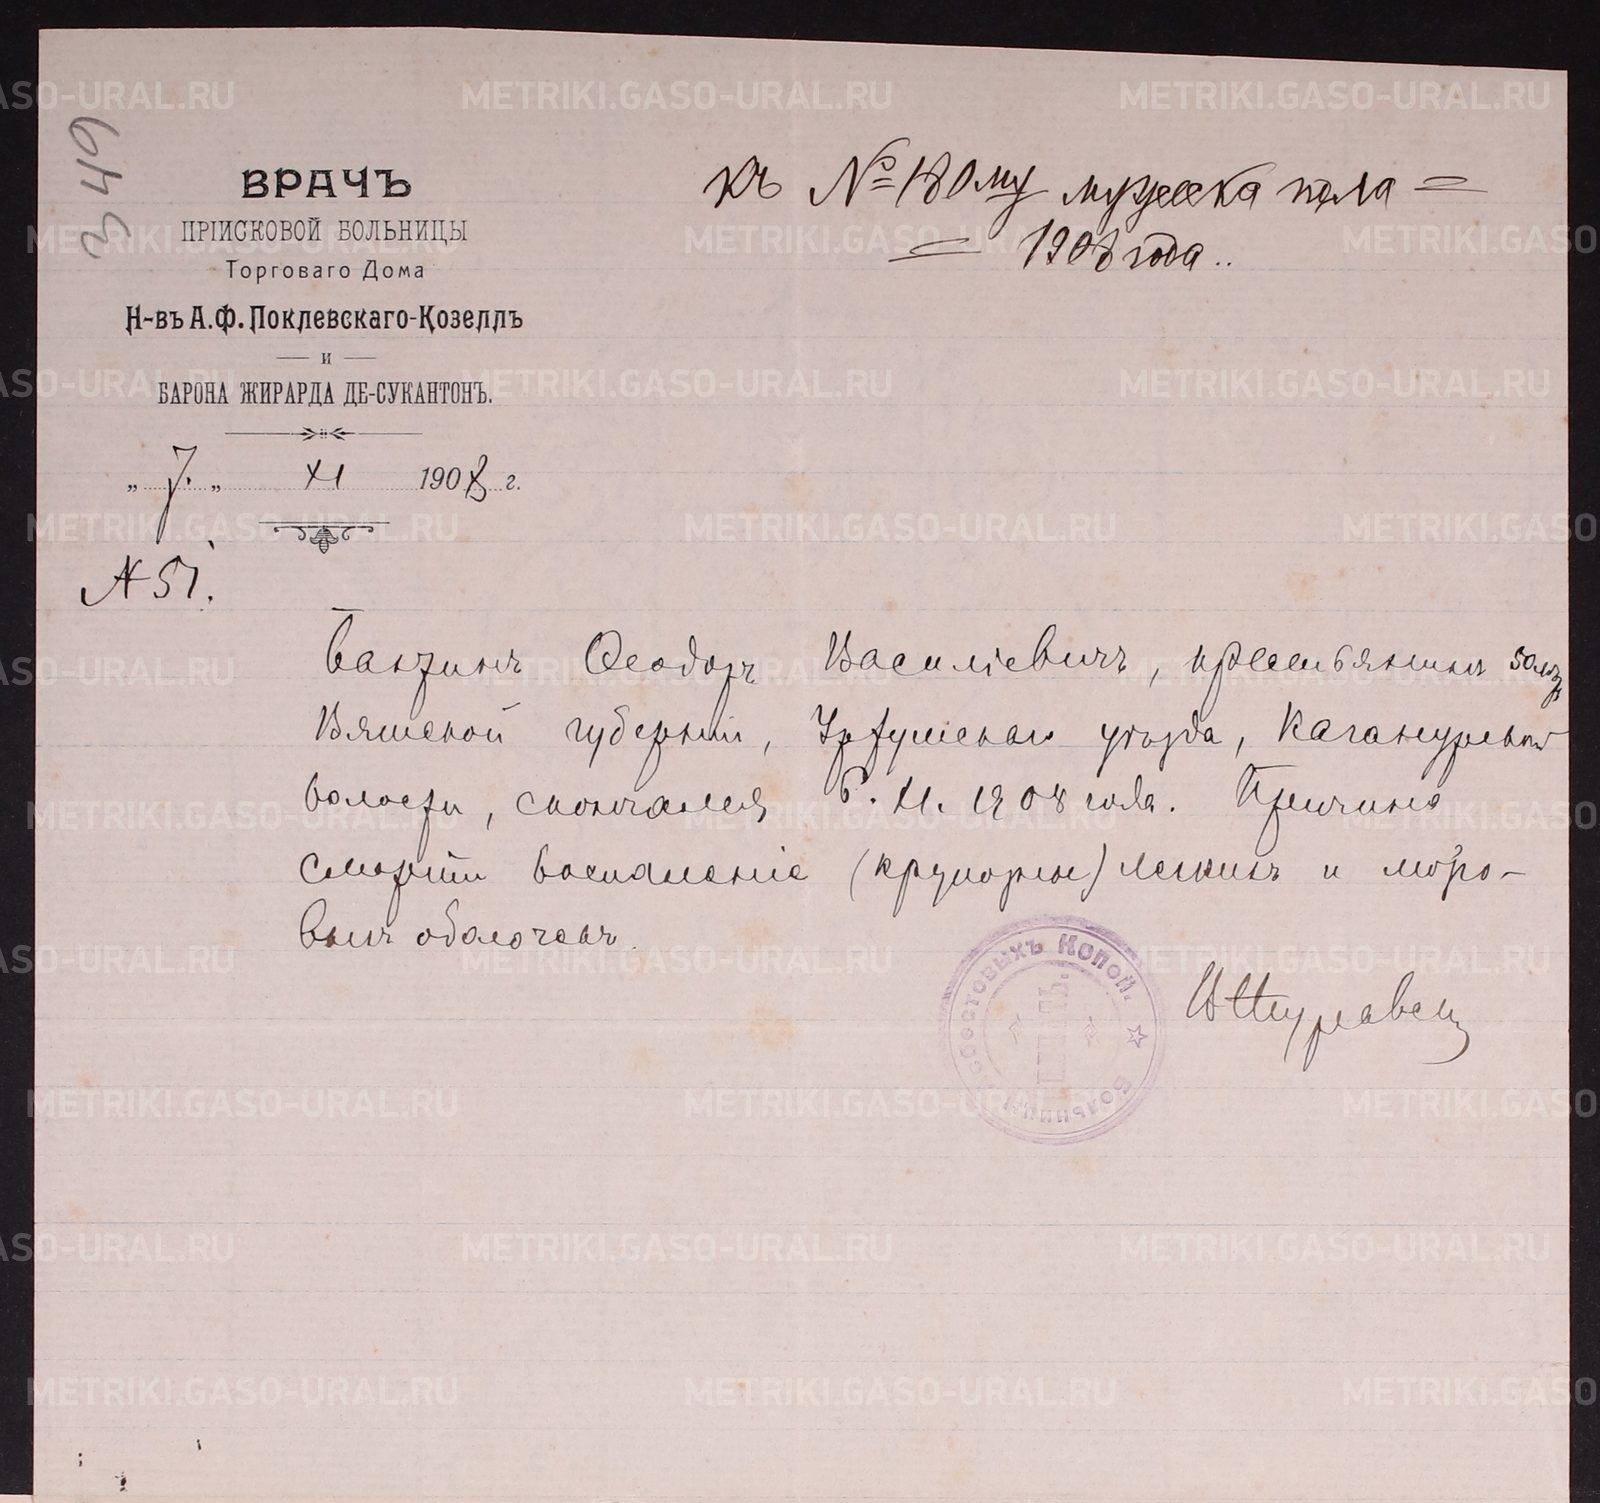 349
ВРАЧЪ
ПРІИСКОВОЙ БОЛЬНИЦЫ
Торговаго Дома
Н-въ А.Ф. Поклевскаго-Козеллъ
и
БАРОНА ЖИРАРДА ДЕ-СУКАНТОНЪ.
„ 7. „ XI 1908 г.
№ 51.
Къ № 180му мужеска пола =
= 1908 года..
Феодоръ Василіевичъ, крестьянинъ
Вятской губерніи, Уржумскаго уѣзда,
волости, скончался 6. XI. 1908 года. Причина
смерти воспаленіе (крупозное) легкихъ и мозго-
выхъ оболочекъ.
Асбестовыхъ Копей.
Больницы
METRIKI.GASO-URAL.RU